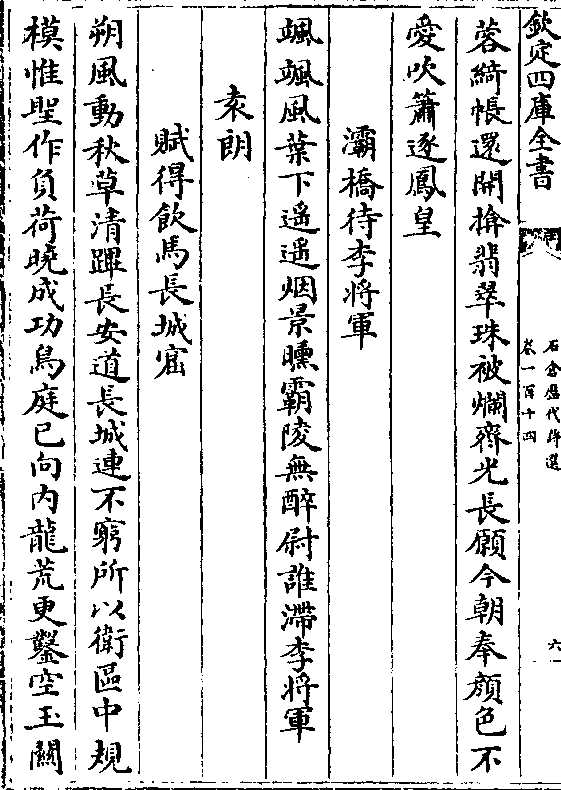 欽定四庫全書
石倉歴代詩選
卷一百十四
六
蓉綺帳還開揜翡翠珠被爛齊光長願今朝奉顔色不
愛吹簫逐鳳皇
灞橋待李將軍
颯颯風葉下遥遥烟景曛霸陵無醉尉誰滯李將軍
袁朗
賦得飲馬長城窟
朔風動秋草清蹕長安道長城連不窮所以衛區中規
模惟聖作負荷曉成功鳥庭已向内龍荒更鑿空玉關